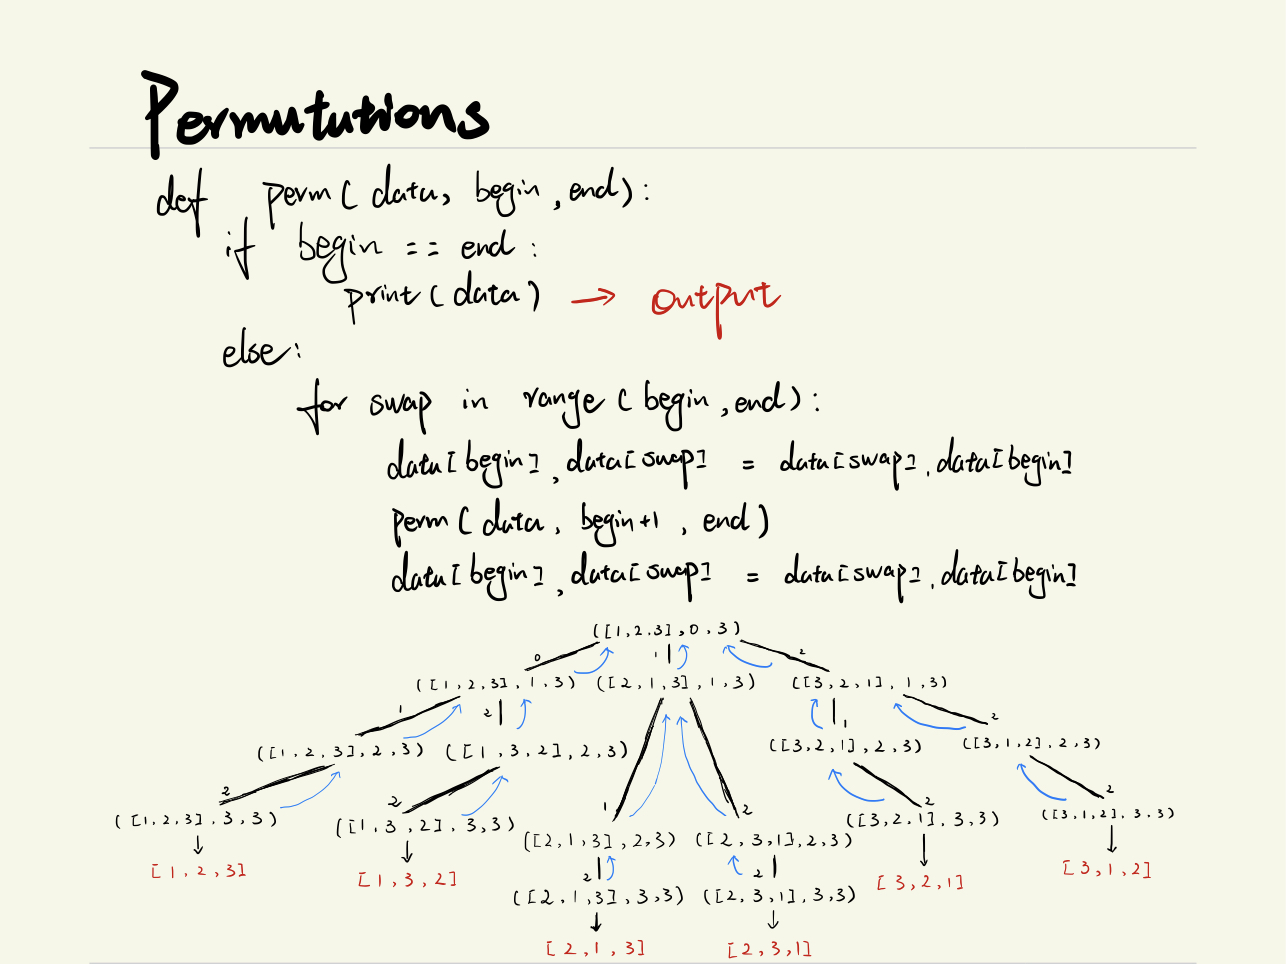 Permututions
def perm(data, begin, end):
if begin == end:
print(data) → output
else:
for swap in range(begin, end):
data[begin], data[swap] = data[swap], data[begin]
perm(data, begin+1, end)
data[begin], data[swap] = data[swap], data[begin]
([1,2,3],0,3)
0 1 2
([1,2,3],1,3) ([2,1,3],1,3) ([3,2,1],1,3)
1 2 1 2
([1,2,3],2,3) ([1,3,2],2,3) ([3,2,1],2,3) ([3,1,2],2,3)
2 2 1 2 2 2
([1,2,3],3,3) ([1,3,2],3,3) ([2,1,3],2,3) ([2,3,1],2,3) ([3,2,1],3,3) ([3,1,2],3,3)
[1,2,3] [1,3,2] 2 2 [3,2,1] [3,1,2]
([2,1,3],3,3) ([2,3,1],3,3)
[2,1,3] [2,3,1]